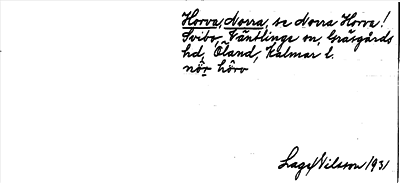 Horva, Norra, se Norra Horva!
Tvibo, Ventlinge sn, Gräsgårds
hd, Öland, Kalmar l.
nör hörv
Lage Nilsson 1931